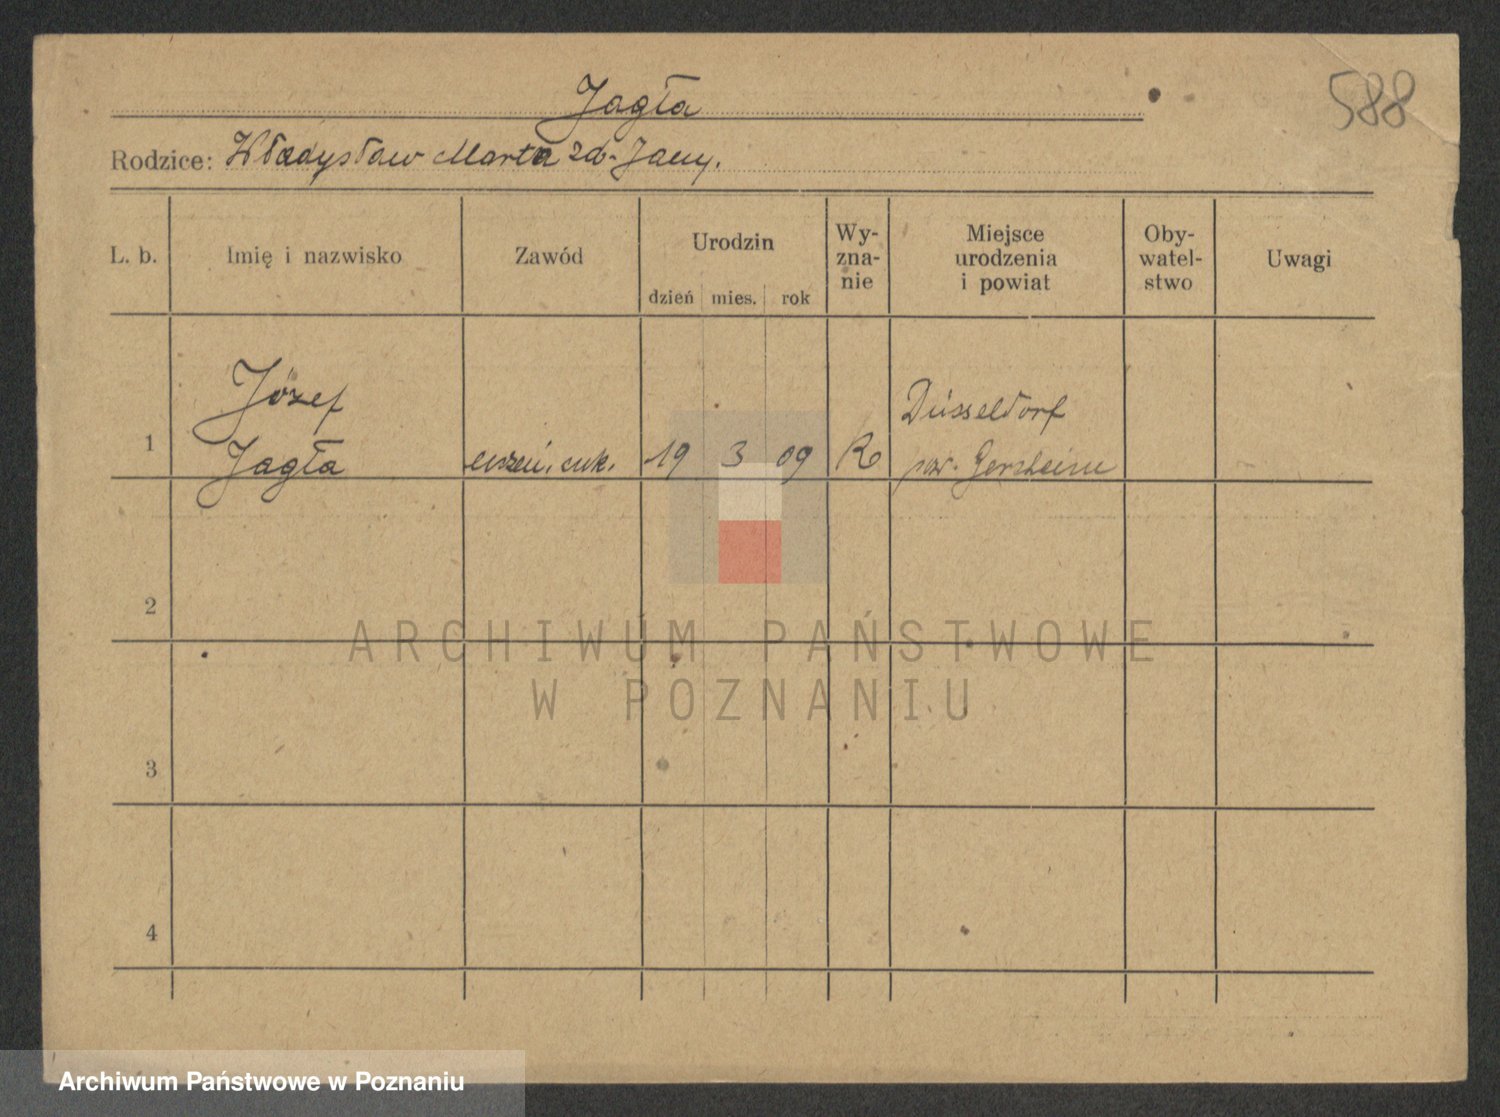 588
Jagła
Rodzice: Władysław Marta zd. Jany.
L. b. Imię i nazwisko Zawód Urodzin Wy-zna-nie Miejsce urodzenia i powiat Oby-watel-stwo Uwagi
dzień mies. rok
Józef Düsseldorf
1 Jagła cuk. 19 3 09 R pow. Gerzheim
2
ARCHIWUM PAŃSTWOWE
W POZNANIU
3
4
Archiwum Państwowe w Poznaniu